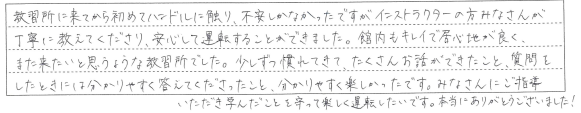 教習所に来てから初めてハンドルに触り、不安しかなかったですがインストラクターの方みなさんが
丁寧に教えてくださり、安心して運転することができました。館内もキレイで居心地が良く、
また来たいと思うような教習所でした。少しずつ慣れてきて、たくさんお話ができたこと、質問を
したときには分かりやすく答えてくださったこと、分かりやすく楽しかったです。みなさんにご指導
いただき学んだことを守って楽しく運転したいです。本当にありがとうございました!